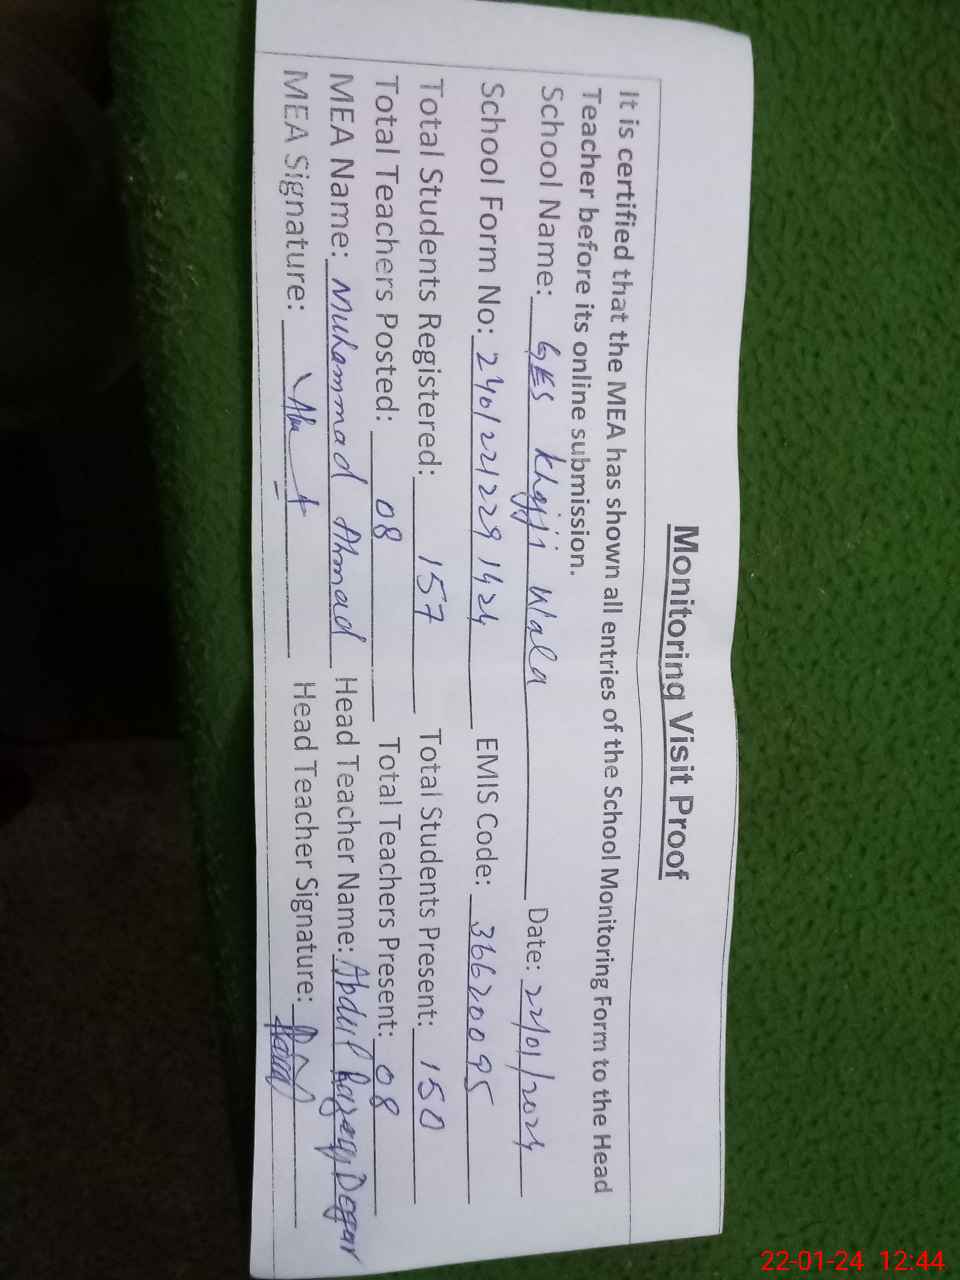 Monitoring Visit Proof
It is certified that the MEA has shown all entries of the School Monitoring Form to the Head
Teacher before its online submission.
School Name: GES Khajji Wala Date: 22/01/2024
School Form No: 240122122291424 EMIS Code: 36620095
Total Students Registered: 157 Total Students Present: 150
Total Teachers Posted: 08 Total Teachers Present: 08
MEA Name: Muhammad Ahmad Head Teacher Name: Abdul Razaq Dogar
MEA Signature: Head Teacher Signature:
22-01-24 12:44